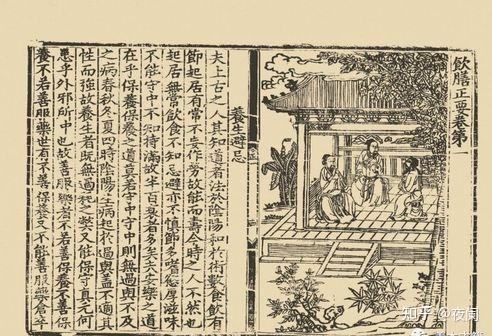 飲膳正要卷第一
養生避忌
夫上古之人其知道者法於陰陽和於術數食飲有
節起居有常不妄作勞故能而壽今時之人不然也
起居無常飲食不知忌避亦不慎節多嗜慾厚滋味
不能守中不知持滿故半百衰者多矣夫安樂之道
在乎保養保養之道莫若守中守中則無過與不及
之病春秋冬夏四時陰陽生病起於過與蓋不適其
性而強故養生者既無過耗之弊又能保守真元何
患乎外邪所中也故善服藥者不若善保養不善保
養不若善服藥世有不善保養又不能善服藥倉卒
知乎 @夜闻